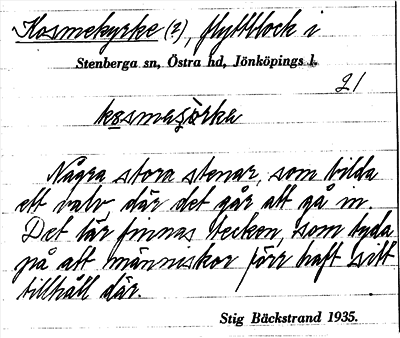 Kosmekyrke (2), flyttblock i
Stenberga sn, Östra hd, Jönköpings l.
21
kosmaʂörka
Några stora stenar, som bilda
ett valv där det går att gå in.
Det lär finnas tecken, som tyda
på att människor förr haft sitt
tillhåll där.
Stig Bäckstrand 1935.